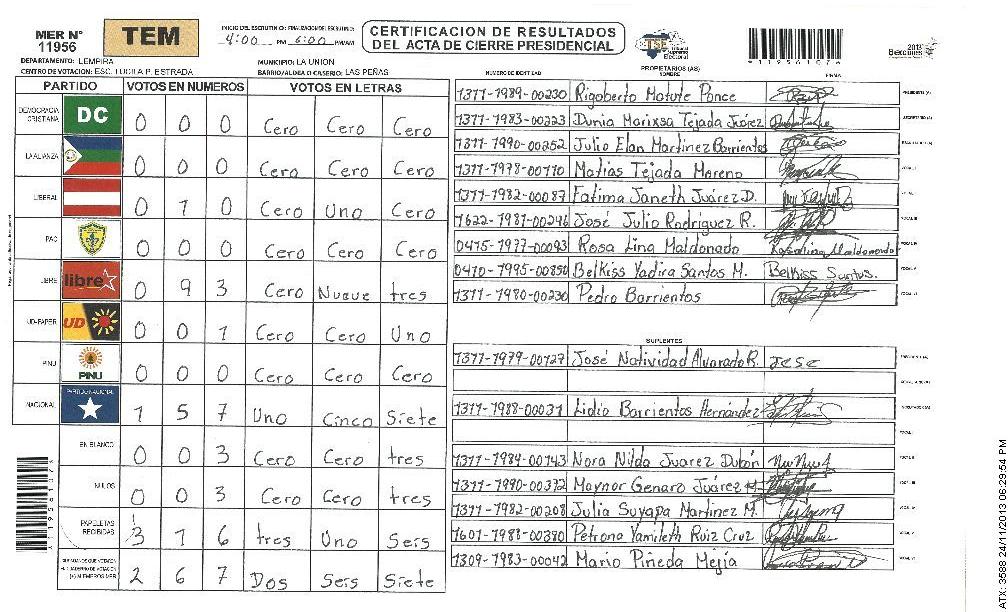 MER N° 11956
TEM
INICIO DEL ESCRUTINIO: FINALIZACION DEL ESCRUTINIO:
4:00 PM 6:00 PM/AM
CERTIFICACION DE RESULTADOS
DEL ACTA DE CIERRE PRESIDENCIAL
TSE Tribunal Supremo Electoral
Elecciones 2013
119561076
DEPARTAMENTO: LEMPIRA
MUNICIPIO: LA UNION
CENTRO DE VOTACION: ESC. LUCILA P. ESTRADA
BARRIO/ALDEA O CASERIO: LAS PEÑAS
NUMERO DE IDENTIDAD
PROPIETARIOS (AS)
NOMBRE
FIRMA
PARTIDO VOTOS EN NUMEROS VOTOS EN LETRAS
DEMOCRACIA CRISTIANA DC 0 0 0 Cero Cero Cero
LA ALIANZA 0 0 0 Cero Cero Cero
LIBERAL 0 1 0 Cero Uno Cero
PAC 0 0 0 Cero Cero Cero
LIBRE libre 0 9 3 Cero Nueve tres
UD-FAPER UD 0 0 1 Cero Cero Uno
PINU PINU 0 0 0 Cero Cero Cero
NACIONAL PARTIDO NACIONAL 1 5 7 Uno Cinco Siete
EN BLANCO 0 0 3 Cero Cero tres
NULOS 0 0 3 Cero Cero tres
PAPELETAS RECIBIDAS 3 1 6 tres Uno Seis
2 6 7 Dos Seis Siete
1311-1989-00230 Rigoberto Matute Ponce PRESIDENTE (A)
1311-1983-00223 Dunia Marixsa Tejada Juárez SECRETARIO (A)
1311-1990-00252 Julio Elan Martinez Barrientos ESCRUTADOR (A)
1311-1978-00110 Matias Tejada Moreno VOCAL I
1311-1982-00087 Fatima Janeth Juárez D. VOCAL II
1622-1987-00246 José Julio Rodríguez R. VOCAL III
0415-1977-00093 Rosa Lina Maldonado Rosa Lina Maldonado VOCAL IV
0410-1995-00850 Belkiss Yadira Santos M. Belkiss Santos. VOCAL V
1311-1980-00230 Pedro Barrientos VOCAL VI
SUPLENTES
1311-1979-00127 José Natividad Alvarado R. Jose PRESIDENTE (A)
SECRETARIO (A)
1311-1988-00031 Lidio Barrientos Hernández ESCRUTADOR (A)
VOCAL I
1311-1984-00143 Nora Nilda Juarez Dubón VOCAL II
1311-1990-00372 Maynor Genaro Juárez M. VOCAL III
1311-1982-00208 Julia Suyapa Martinez M. VOCAL IV
1601-1988-00380 Petrona Yamileth Ruiz Cruz VOCAL V
1309-1983-00042 Mario Piñeda Mejía VOCAL VI
ATX: 3588 24/11/2013 06:29:54 PM